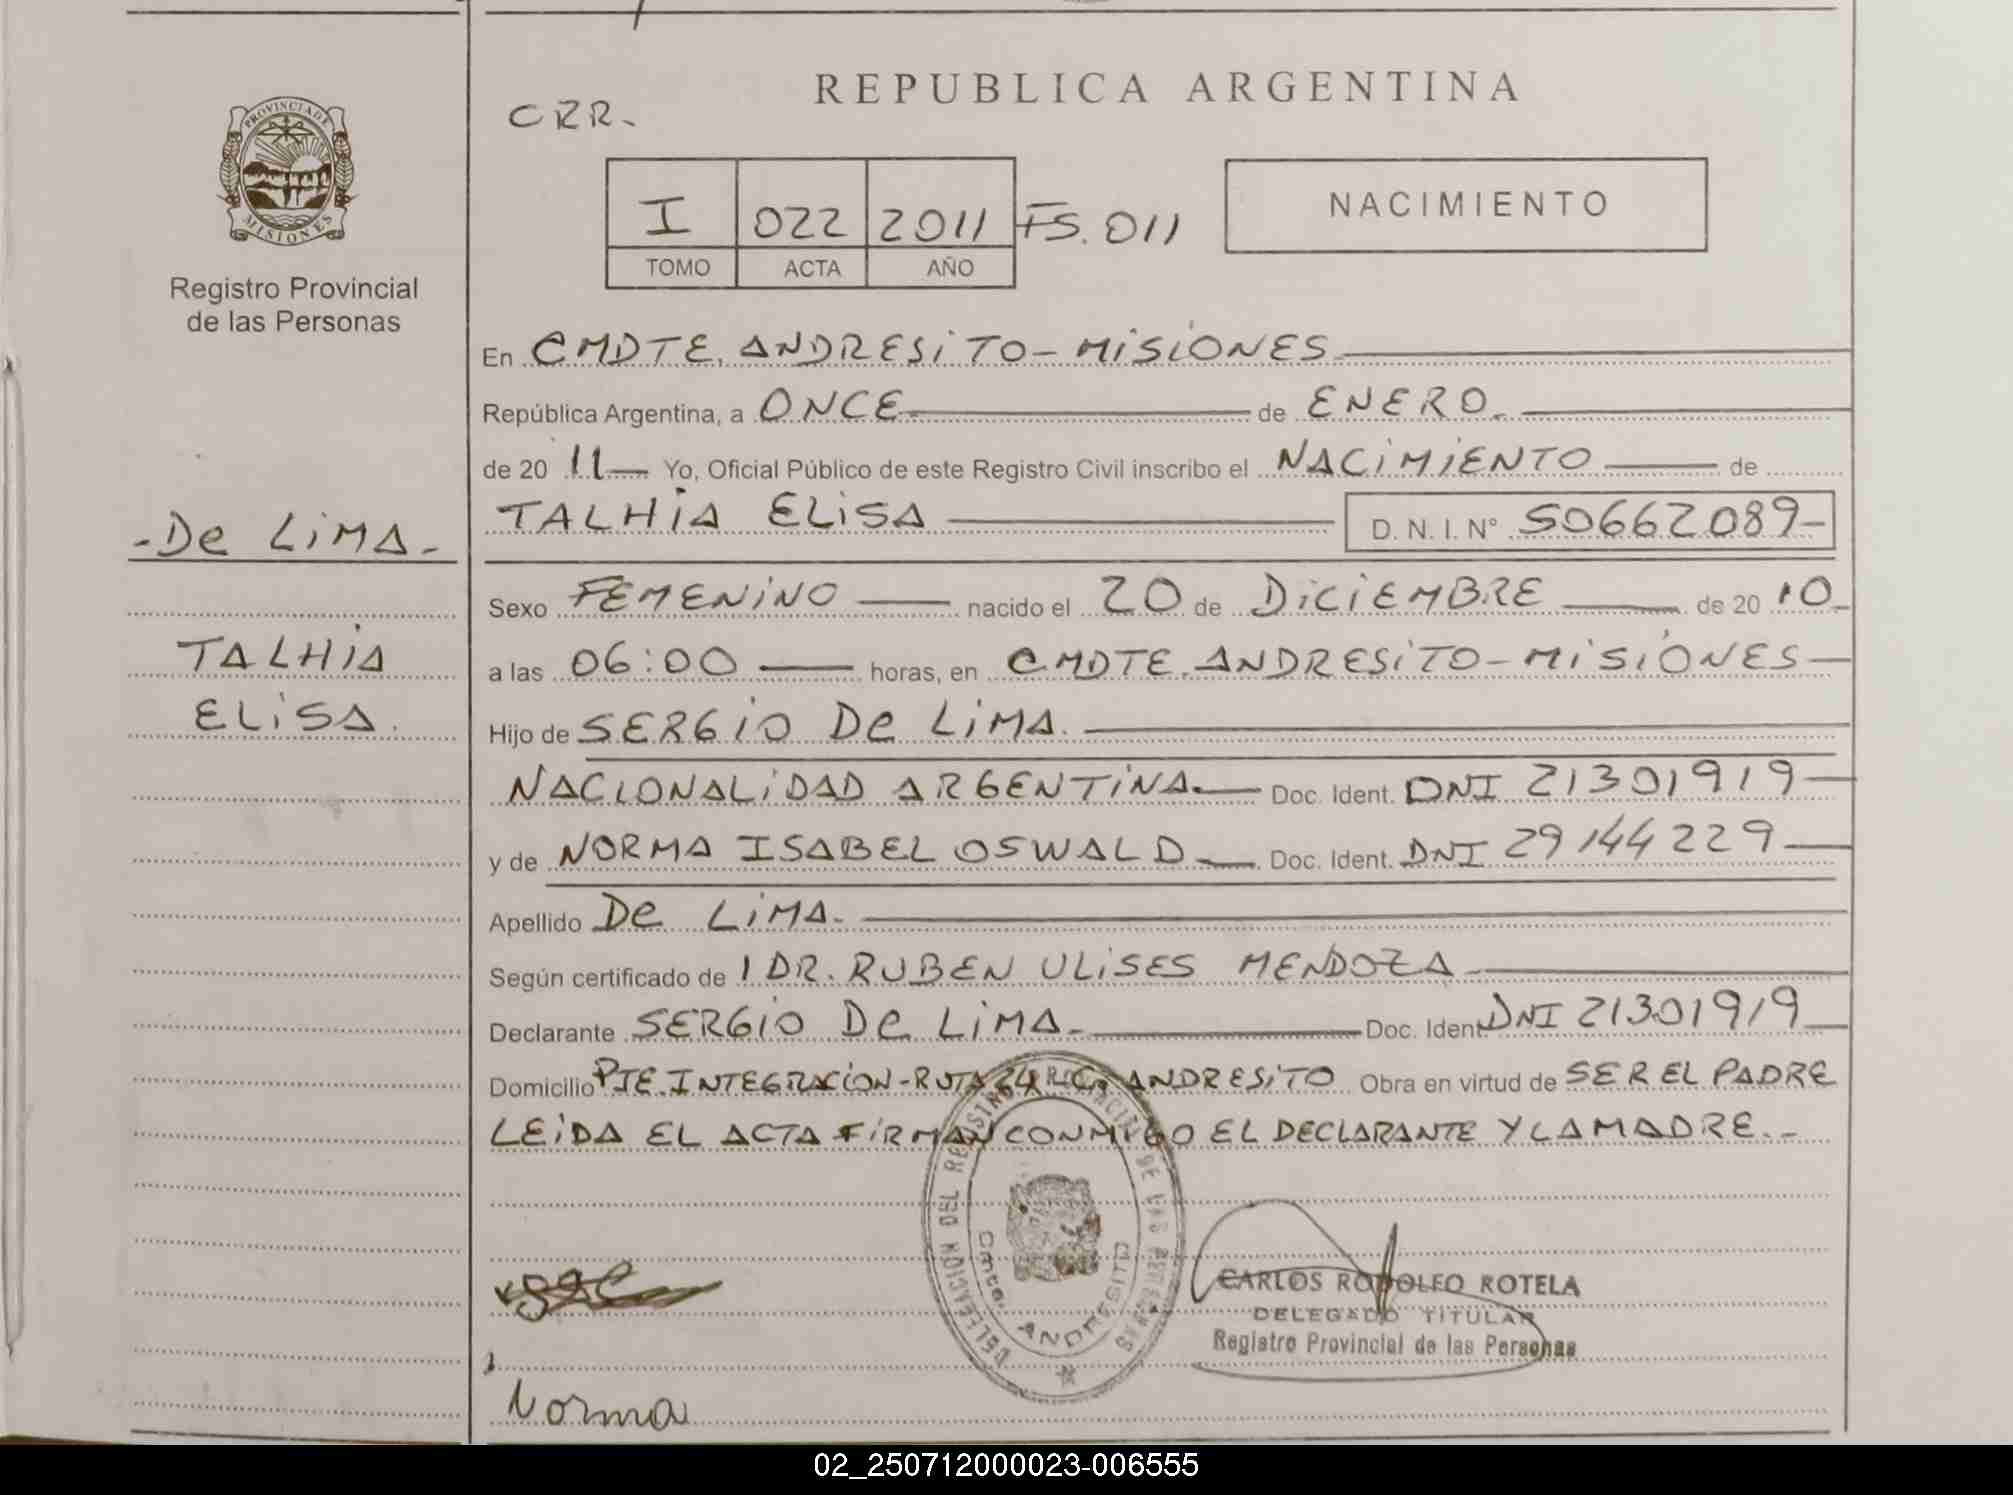 REPUBLICA ARGENTINA
CRR.
PROVINCIA DE
MISIONES
Registro Provincial
de las Personas
I 022 2011 FS. 011
TOMO ACTA AÑO
NACIMIENTO
En CMDTE. ANDRESITO - MISIONES
República Argentina, a ONCE de ENERO.
de 20 11 Yo, Oficial Público de este Registro Civil inscribo el NACIMIENTO de
TALHIA ELISA D. N. I. N° 50662089-
- De LIMA -
TALHIA
ELISA.
Sexo FEMENINO nacido el 20 de DICIEMBRE de 20 10
a las 06:00 horas, en CMDTE. ANDRESITO - MISIONES
Hijo de SERGIO De LIMA.
NACIONALIDAD ARGENTINA. Doc. Ident. DNI 21301919
y de NORMA ISABEL OSWALD Doc. Ident. DNI 29144229
Apellido De LIMA.
Según certificado de 1 DR. RUBEN ULISES MENDOZA
Declarante SERGIO De LIMA. Doc. Ident. DNI 21301919
Domicilio PTE. INTEGRACION - RUTA ANDRESITO Obra en virtud de SER EL PADRE
LEIDA EL ACTA FIRMAN CONMIGO EL DECLARANTE Y LA MADRE. -
DELEGACION DEL REGISTRO PROVINCIAL DE LAS PERSONAS
Cmte. ANDRESITO
CARLOS RODOLFO ROTELA
DELEGADO TITULAR
Registro Provincial de las Personas
Norma
02_250712000023-006555